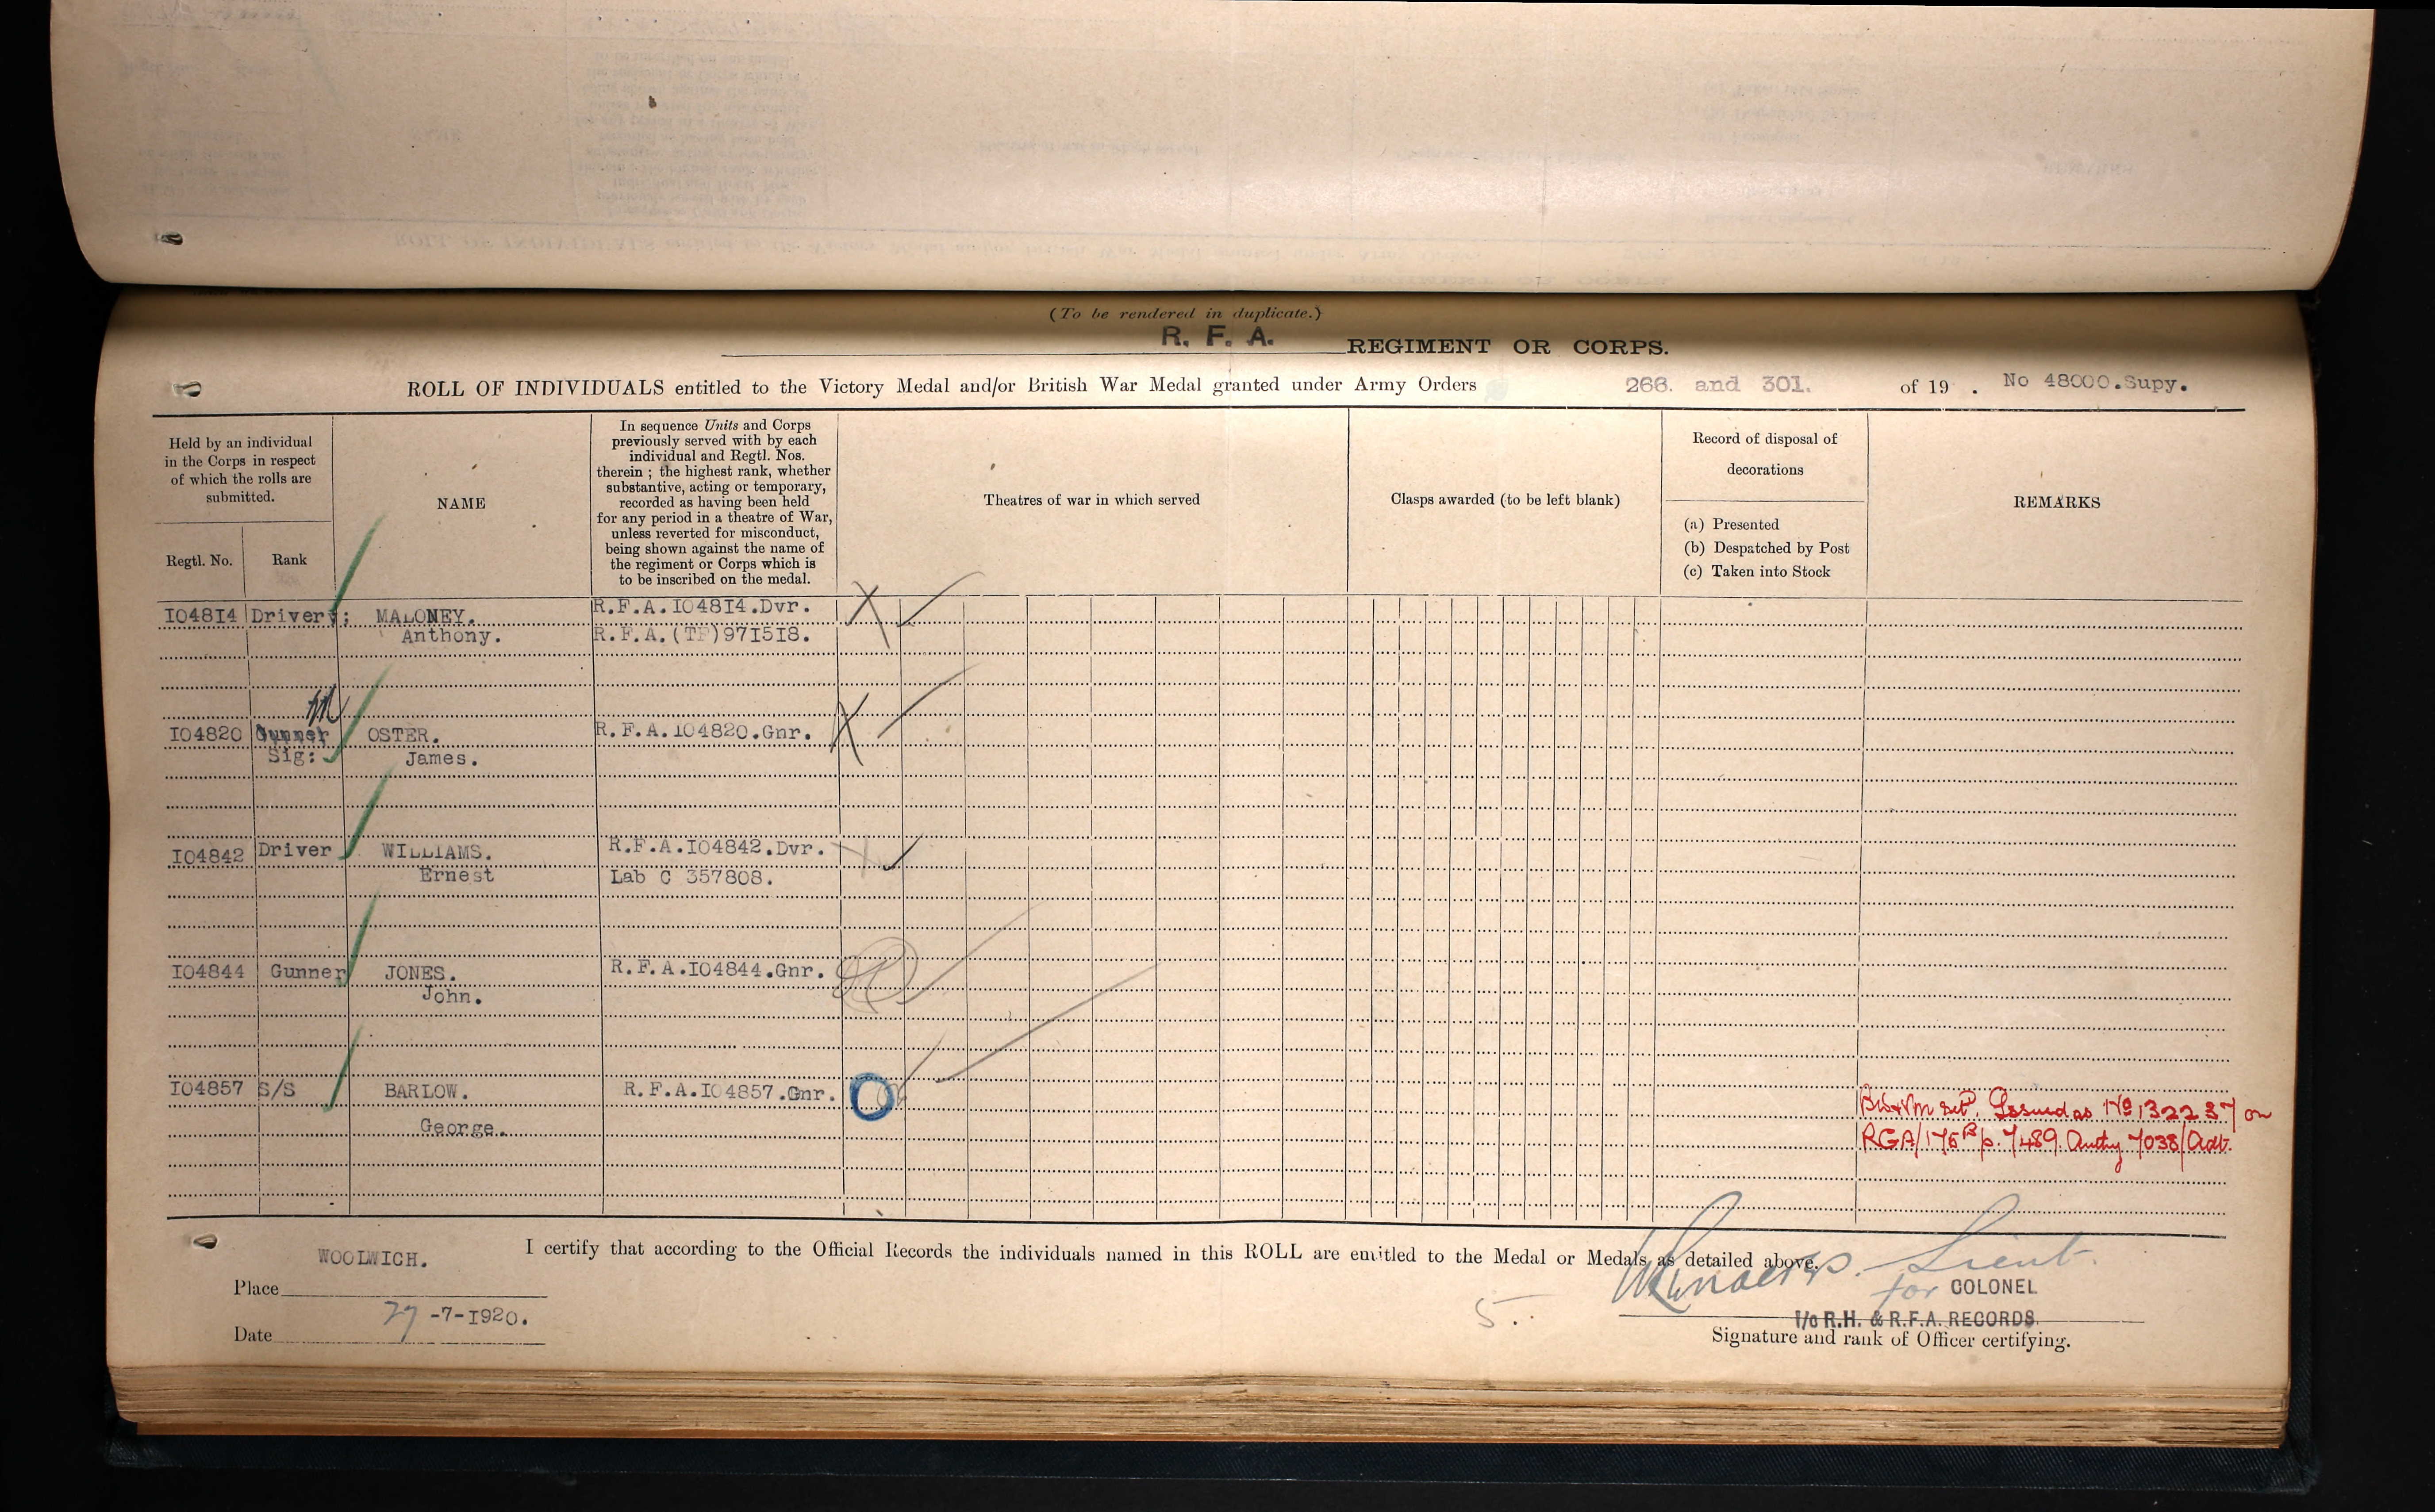 (To be rendered in duplicate.)
R. F. A. REGIMENT OR CORPS.
ROLL OF INDIVIDUALS entitled to the Victory Medal and/or British War Medal granted under Army Orders 266. and 301. of 19 . No 48000.Supy.
Held by an individual
in the Corps in respect
of which the rolls are
submitted.
Regtl. No.
Rank
NAME
In sequence Units and Corps
previously served with by each
individual and Regtl. Nos.
therein ; the highest rank, whether
substantive, acting or temporary,
recorded as having been held
for any period in a theatre of War,
unless reverted for misconduct,
being shown against the name of
the regiment or Corps which is
to be inscribed on the medal.
Theatres of war in which served
Clasps awarded (to be left blank)
Record of disposal of
decorations
(a) Presented
(b) Despatched by Post
(c) Taken into Stock
REMARKS
104814 Driver; MALONEY. R.F.A.104814.Dvr.
Anthony. R.F.A.(TF)971518.
104820 Gunner OSTER. R.F.A.104820.Gnr.
Sig: James.
104842 Driver WILLIAMS. R.F.A.104842.Dvr.
Ernest Lab C 357808.
104844 Gunner JONES. R.F.A.104844.Gnr.
John.
104857 S/S BARLOW. R.F.A.104857.Gnr. Issued as No 132237 on
George. RGA/175B/p.7489. Authy 7038/Adt.
WOOLWICH.
I certify that according to the Official Records the individuals named in this ROLL are entitled to the Medal or Medals as detailed above.
Place
Lieut
for COLONEL
27-7-1920.
5.
I/c R.H. & R.F.A. RECORDS.
Date
Signature and rank of Officer certifying.